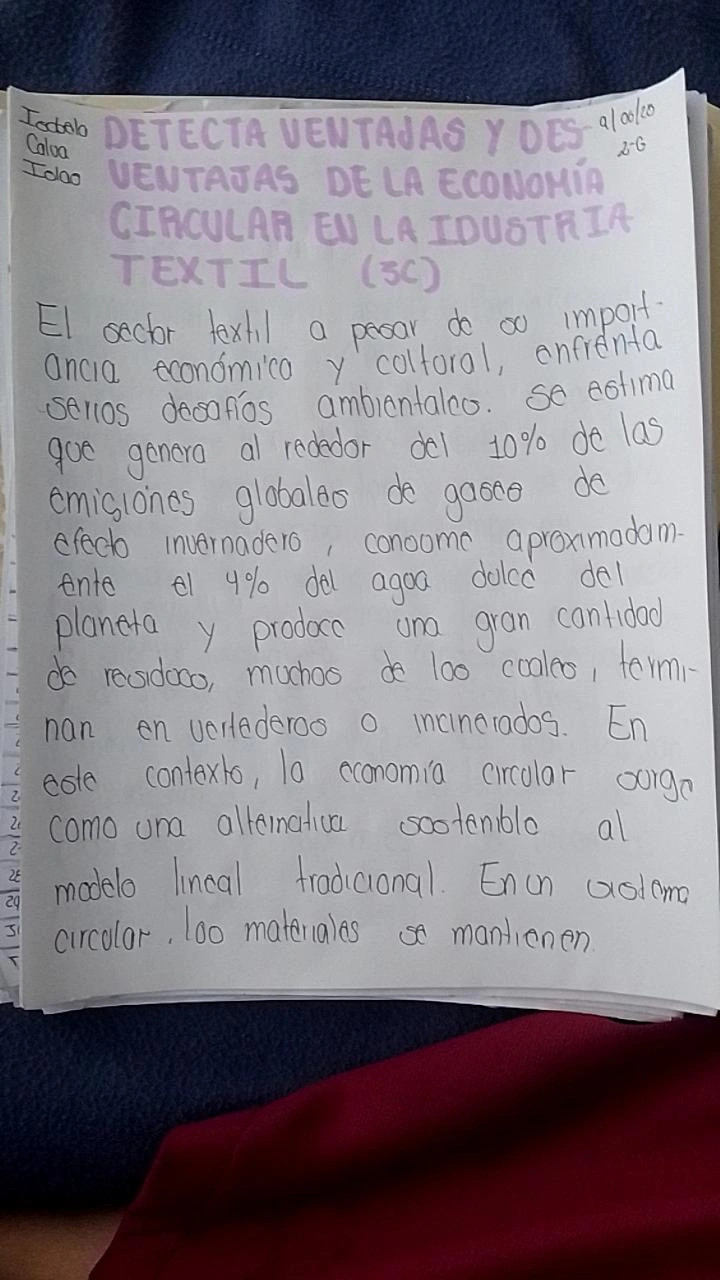 Isabela
Calva
Islas
9/00/20
2-G
DETECTA VENTAJAS Y DES-
VENTAJAS DE LA ECONOMÍA
CIRCULAR EN LA IDUSTRIA
TEXTIL (3C)
El sector textil a pesar de su import-
ancia económica y cultural, enfrenta
serios desafíos ambientales. Se estima
que genera al rededor del 10% de las
emisiones globales de gases de
efecto invernadero, consume aproximadam-
ente el 4% del agua dulce del
planeta y produce una gran cantidad
de residuos, muchos de los cuales, termi-
nan en vertederos o incinerados. En
este contexto, la economía circular surge
como una alternativa sostenible al
modelo lineal tradicional. En un sistema
circular, los materiales se mantienen